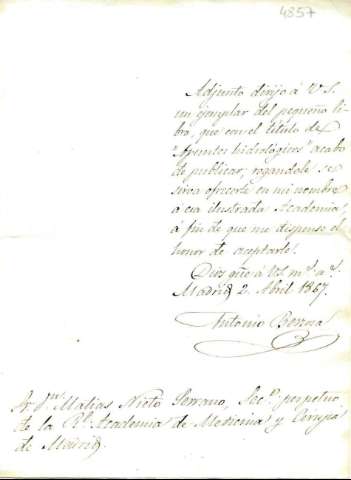 4857
Adjunto dirijo á V. S.
un ejemplar del pequeño li-
bro, que con el titulo de
"Apuntes hidrológicos" acabo
de publicar, rogandole se
sirva ofrecerle en mi nombre
á esa ilustrada Academia,
á fin de que me dispense el
honor de aceptarle.
Dios gue á VS. ms. as.
Madrid 2. Abril 1867.
Antonio
Sr. Dn. Matias Nieto Serrano, Seco. perpetuo
de la Rl. Academia de Medicina y Cirugia
de Madrid.